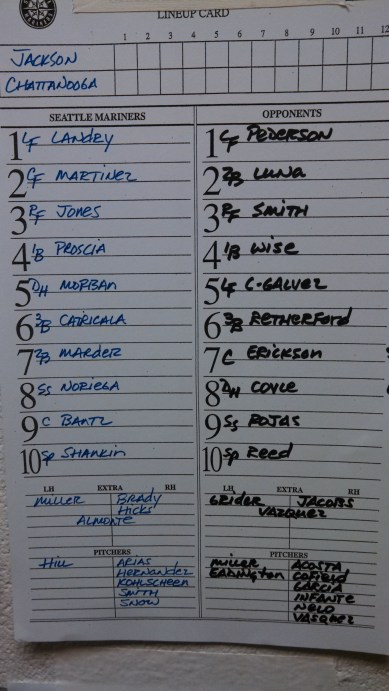 LINEUP CARD
1 2 3 4 5 6 7 8 9 10 11 12
JACKSON
CHATTANOOGA
SEATTLE MARINERS
1 LF LANDRY
2 CF MARTINEZ
3 RF JONES
4 1B PROSCIA
5 DH MORBAN
6 3B CATRICALA
7 2B MARDER
8 SS NORIEGA
9 C BANTZ
10 SP SHANKIN
LH EXTRA RH
MILLER BRADY
HICKS
ALMONTE
PITCHERS
HILL ARIAS
HERNANDEZ
KOHLSCHEEN
SMITH
SNOW
OPPONENTS
1 CF PEDERSON
2 2B LUNA
3 RF SMITH
4 1B WISE
5 LF C-GALVEZ
6 3B RETHERFORD
7 C ERICKSON
8 DH COYLE
9 SS ROJAS
10 SP REED
LH EXTRA RH
GRIDER JACOBS
VAZQUEZ
PITCHERS
MILLER ACOSTA
EADINGTON COFIELD
GARCIA
INFANTE
NELO
VASQUEZ